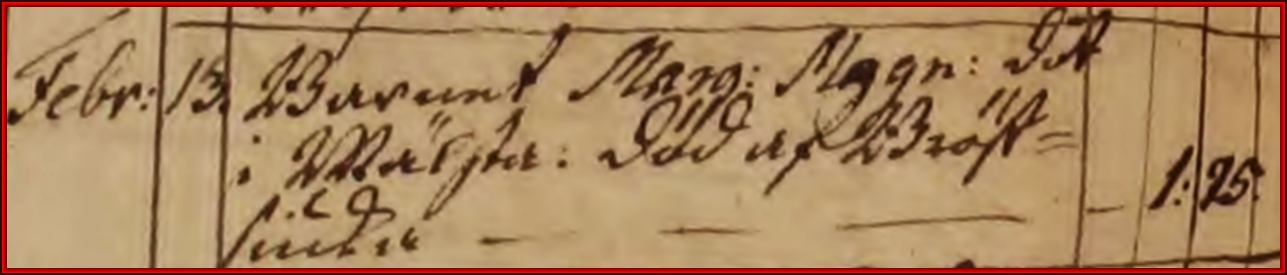 Febr: 13. Barnet Marg: Magn: Dott
i Wästa: död af Bröst=
siuka — — — — 1: 25.